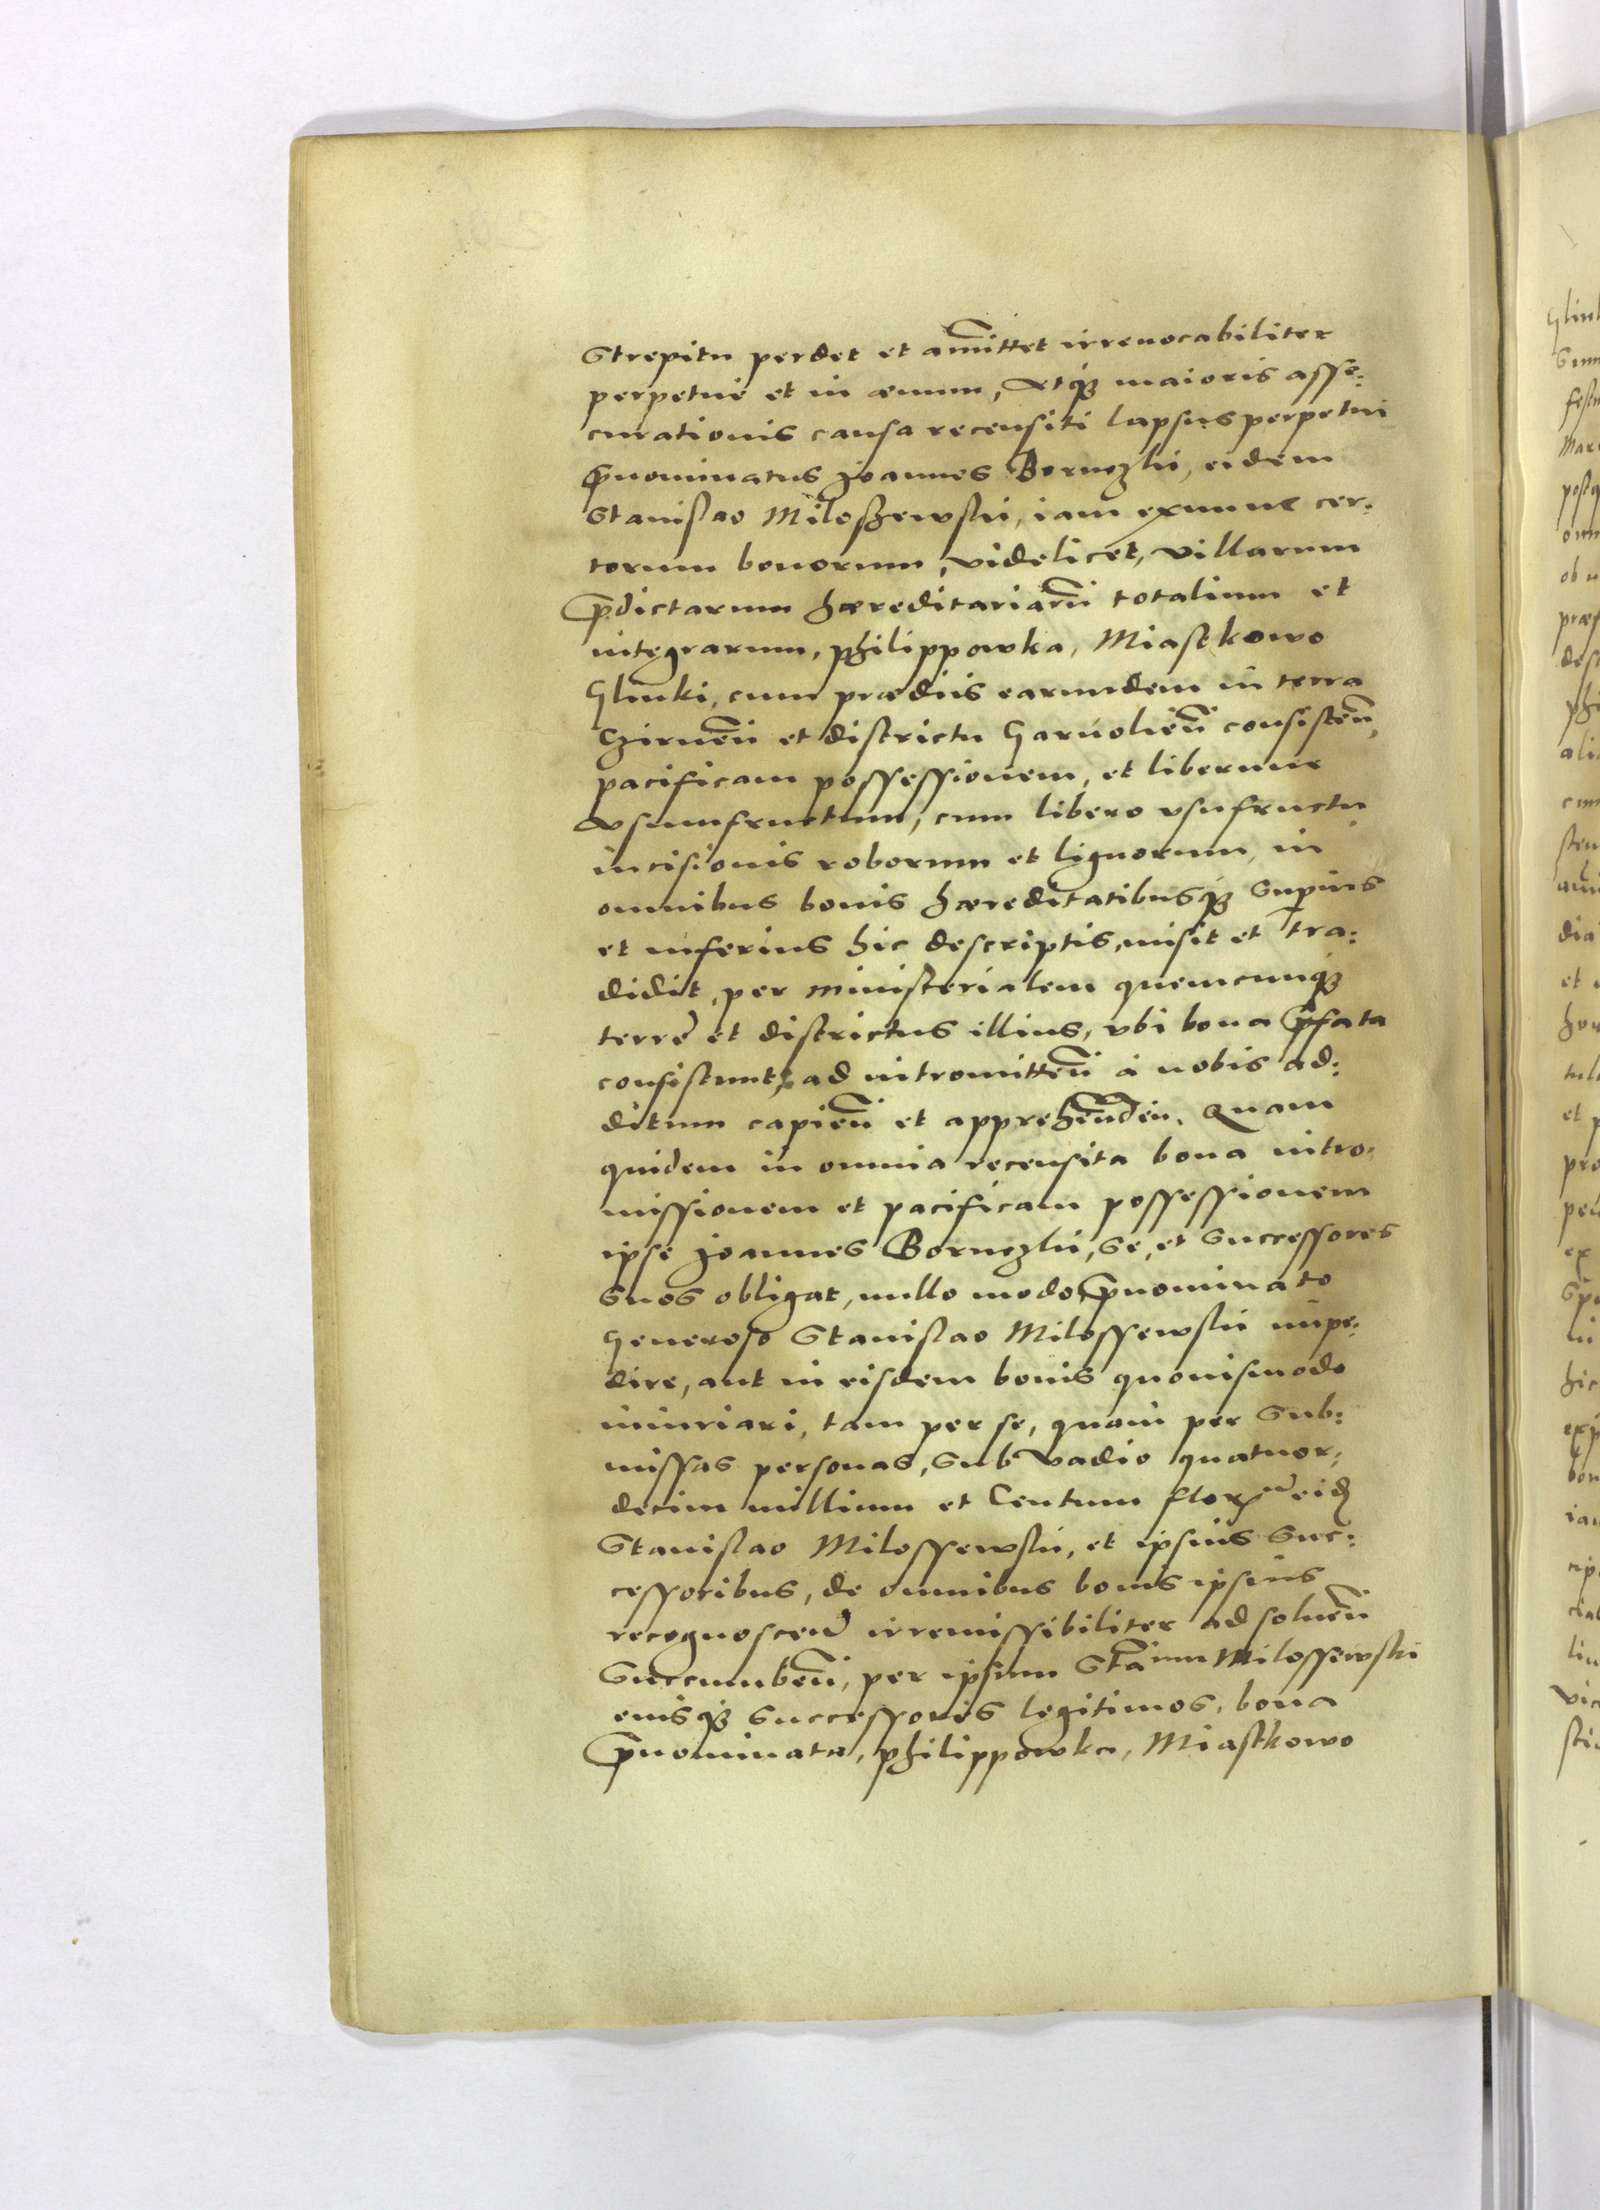 Strepitu perdet et amittet irreuocabiliter
perpetue et in æuum, Atq₃ maioris asse:
curationis causa recensiti lapsus perpetui
p̄nominatus Joannes Boruczki, eidem
Stanislao Miloszewski, iam exnunc cer:
torum bonorum, videlicet, villarum
p̄dictarum hæreditariarū totalium et
integrarum, Philippowka, Miastkowo
Glinki, cum prædiis earundem in terra
Czirneñ et districtu Garuolieñ consisteñ,
pacificam possessionem, et liberum
vsumfructum, cum libero vsufructu
incisionis roborum et lignorum, in
omnibus bonis hæreditatibusq₃ superius
et inferius hic descriptis, misit et tra:
didit, per ministerialem quemcunq₃
terrę et districtus illius, vbi bona p̄fata
consistunt, ad intromitteñ a nobis ad:
ditum capieñ et apprehendeñ. Quam
quidem in omnia recensita bona intro:
missionem et pacificam possessionem
ipse Joannes Boruczki, se, et successores
suos obligat, nullo modo p̄nominato
Generoso Stanislao Milossewski impe:
dire, aut in eisdem bonis quouismodo
iniuriari, tam per se, quam per sub:
missas personas, sub vadio quatuor:
decim millium et Centum flor eid
Stanislao Milossewski, et ipsius suc:
cessoribus, de omnibus bonis ipsius
recognosceñ irremissibiliter ad solueñ
succumbeñ, per ipsum Sta᷈um Milossewski
eiusq₃ successores legitimos, bona
p̄nominata, Philippowka, Miastkowo